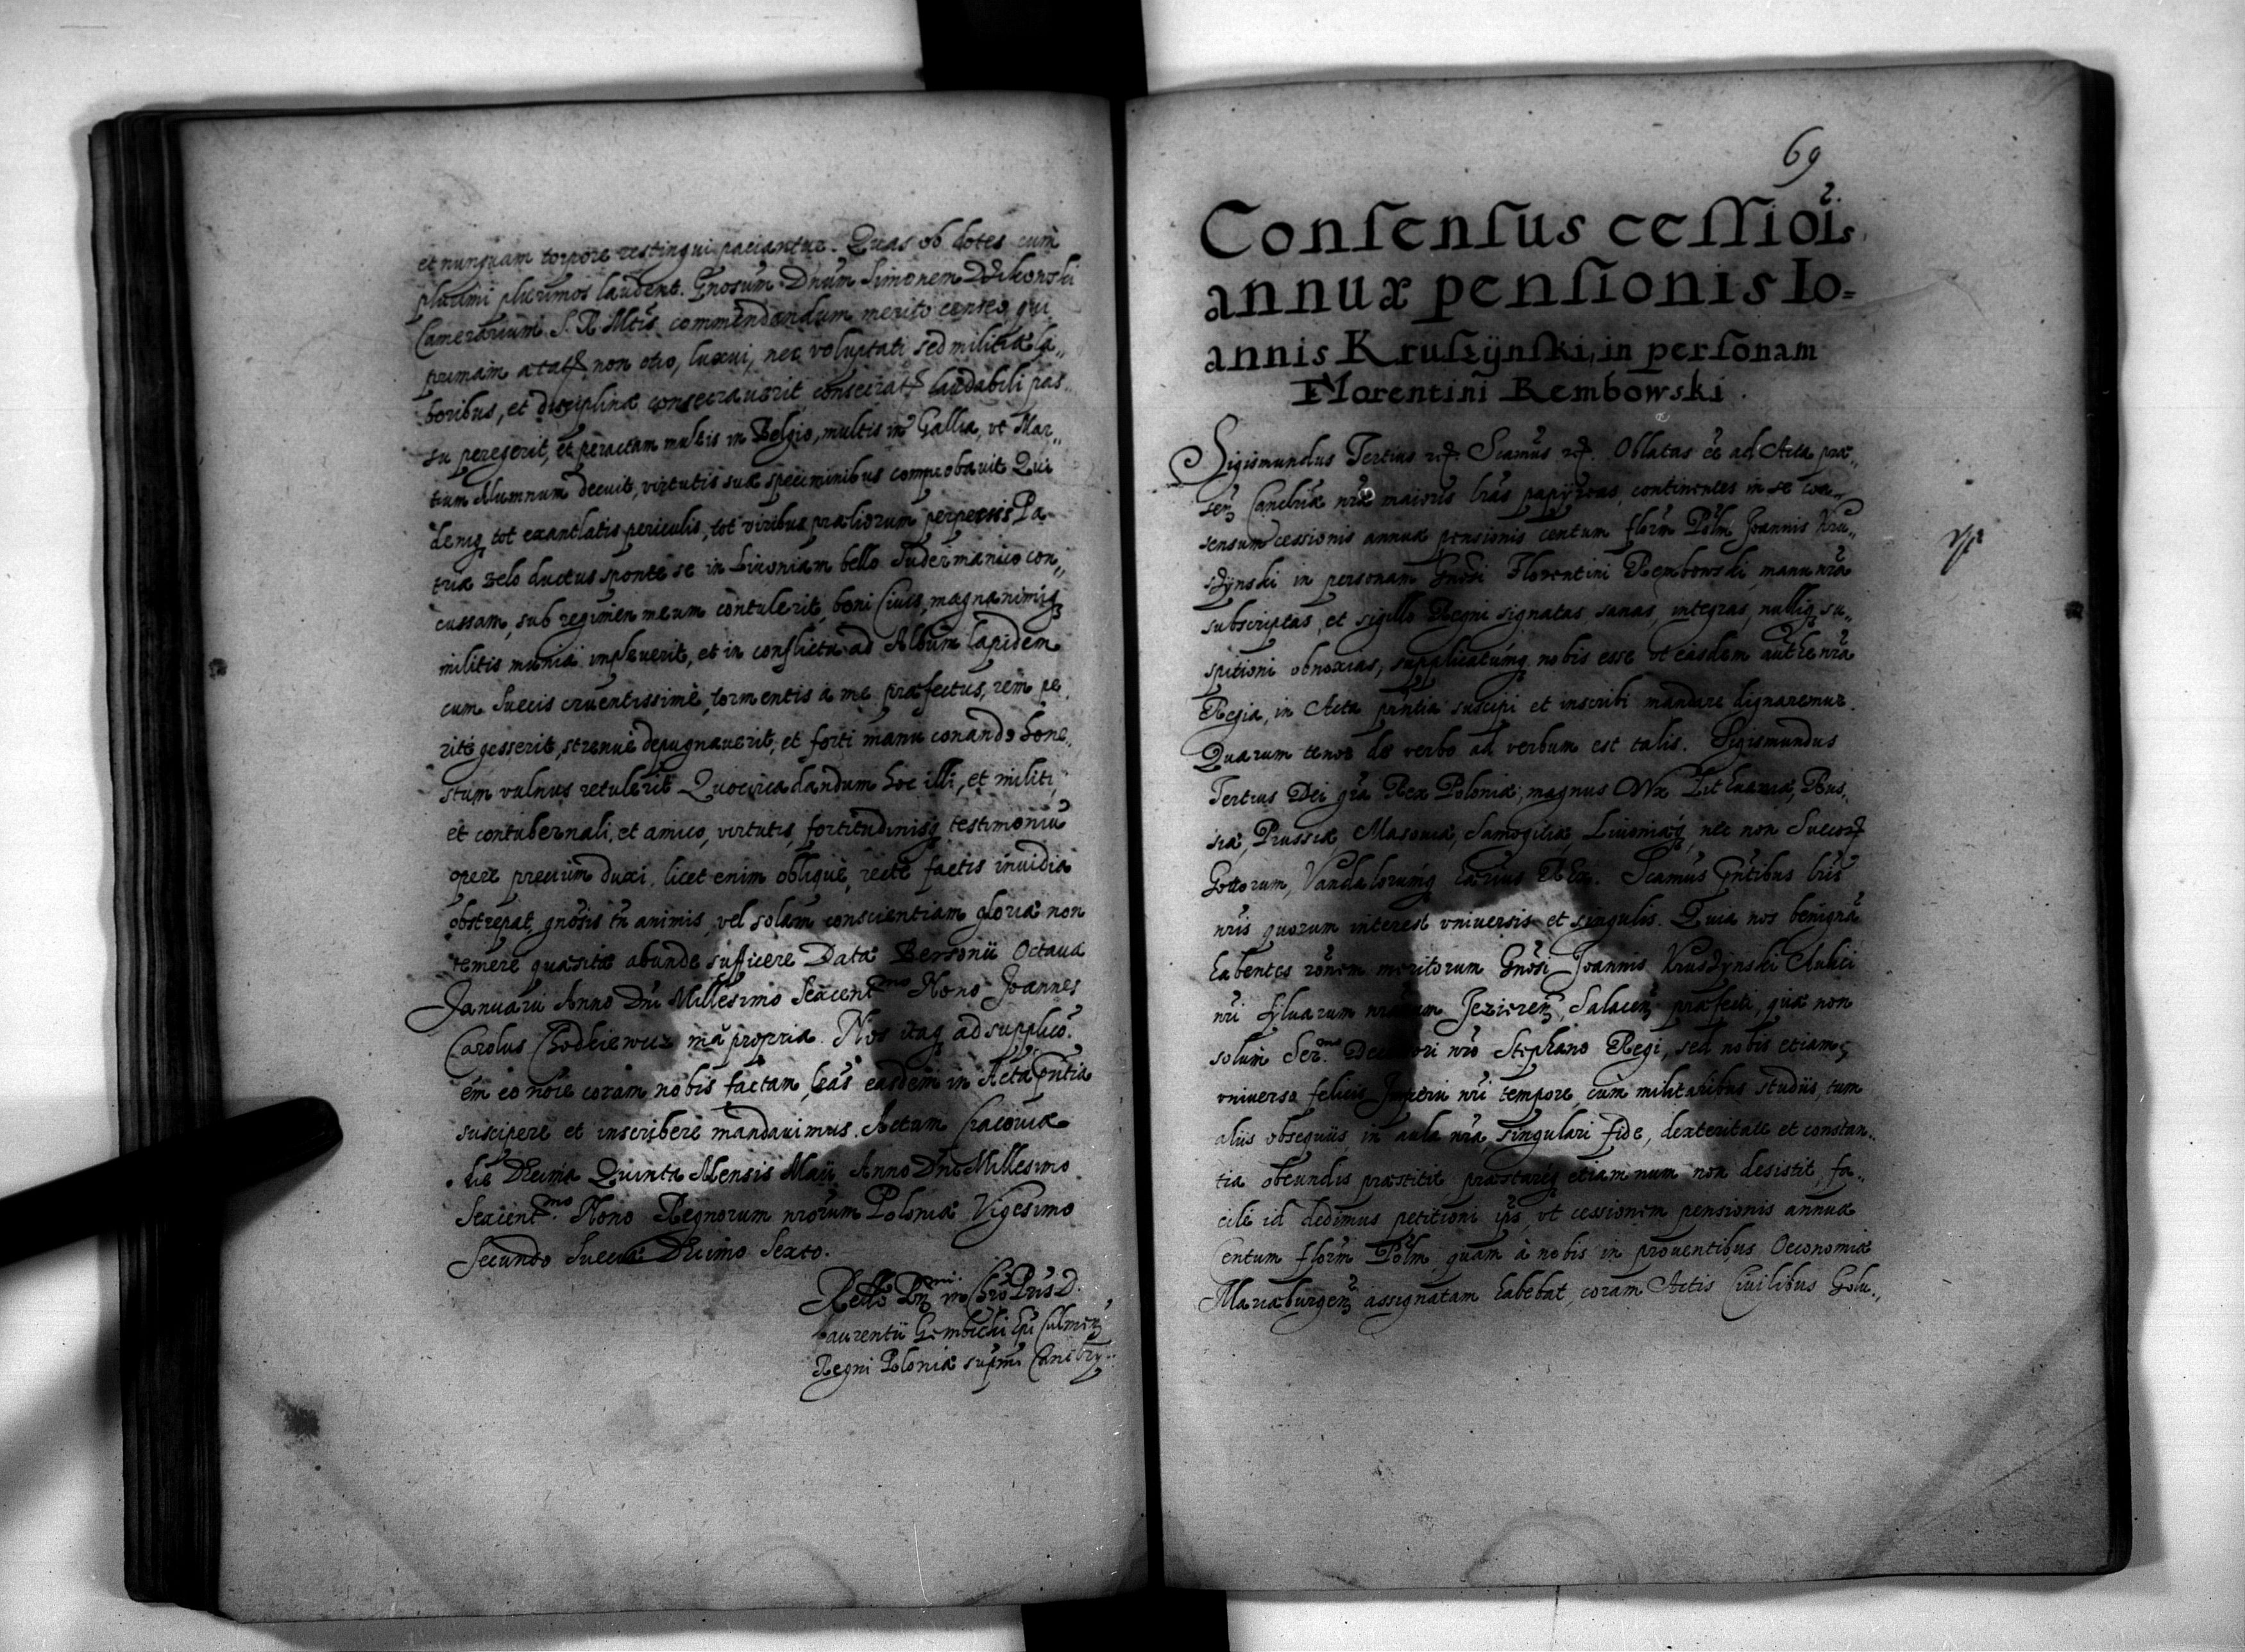 et nunquam torpore restingui paciantur. Quas ob dotes cum
plurimi plurimos laudent. Gnosum Dnum Simonem
Camerarium S. R. Mtis commendandum merito censeo, qui
primam ætatē non otio, luxui, nec voluptati sed militiæ la„
boribus, et disciplinæ consecrauerit consecratā laudabili pas„
su peregerit, et peractam multis in Belgio, multis in Gallia, vt Mar„
tium Alumnum decuit, virtutis suæ speciminibus comprobauit Qui
deniq tot exantlatis periculis, tot viribus præliorum perpessis Pa„
triæ zelo ductus sponte se in Liuoniam bello Sudermanico con„
cussam, sub regimen meum contulerit, boni Ciuis, magnanimiq
militis munia impleuerit, et in conflictu ad Album lapidem
cum Suecis cruentissimè, tormentis à me præfectus, rem pe„
ritè gesserit, strenuè depugnauerit, et forti manu conando hone„
stum vulnus retulerit Quocirca dandum hoc illi, et militi,
et contubernali, et amico, virtutis, fortitudinisq testimoniū
opere precium duxi, licet enim obliquè, rectè factis inuidia
obstrepat, gnosis tn animis, vel solam conscientiam gloriæ non
temerè quæsitæ abunde sufficere Data Bersonii Octaua
Januarii Anno Dni Millesimo Sexcentmo Nono Joannes
Carolus Chodkiewicz mā propria. Nos itaq ad supplicō„
em eo noīe coram nobis factam, lrās easdem in Acta pntia
suscipere et inscribere mandauimus. Actum Cracouiæ
die Decima Quinta Mensis Maii Anno Dni Millesimo
Sexcentmo Nono Regnorum nrorum Poloniæ Vigesimo
Secundo Sueciæ Decimo Sexto.
Rello Rmi in Chro Pris D.
Laurentii Gembicki Epi Culmen
Regni Poloniæ supmi Cancrii
69
Consensus cessiois
annuæ pensionis Io=
annis Kruszÿnski, in personam
Florentini Rembowski.
Sigismundus Tertius etc. Scamus etc. Oblatas eē ad Acta præ„
sen Cancriæ nræ maioris lrās papÿreas, continentes in se con„
sensum cessionis annuæ pensionis centum florm Polm Joannis Kru„
szÿnski in personam Gnosi Florentini Rembowski, manu nrā
subscriptas, et sigillo Regni signatas, sanas, integras, nulliq su„
spitioni obnoxias, supplicatumq nobis esse vt easdem authte nrā
Regia, in Acta pntia suscipi et inscribi mandare dignaremur.
Quarum tenor de verbo ad verbum est talis. Sigismundus
Tertius Dei grā Rex Poloniæ, magnus Dux Lithuaniæ, Rus„
siæ, Prussiæ, Masouiæ, Samogitiæ, Liuoniæq nec non Suecorz
Gottorum, Vandalorumq hærius REx. Scamus pntibus lris
nris quorum interest vniuersis et singulis. Quia nos benignā
habentes rōnem meritorum Gnosi Joannis Kruszÿnski Aulici
nri syluarum nrarum Jezieren, Salacen præfecti, quæ non
solum Sermo Decessori nro Stephano Regi, sed nobis etiam,
vniuerso felicis Imperii nri tempore, cum militaribus studiis, tum
aliis obsequiis, in aula nra, singulari fide, dexteritate et constan„
tia obeundis præstitit præstareq etiam num non desistit, fa„
cilè id dedimus petitioni ipis, vt cessionem pensionis annuæ
centum florm Polm, quam à nobis in prouentibus Oeconomiæ
Mariæburgen assignatam habebat, coram Actis Ciuilibus Golu„